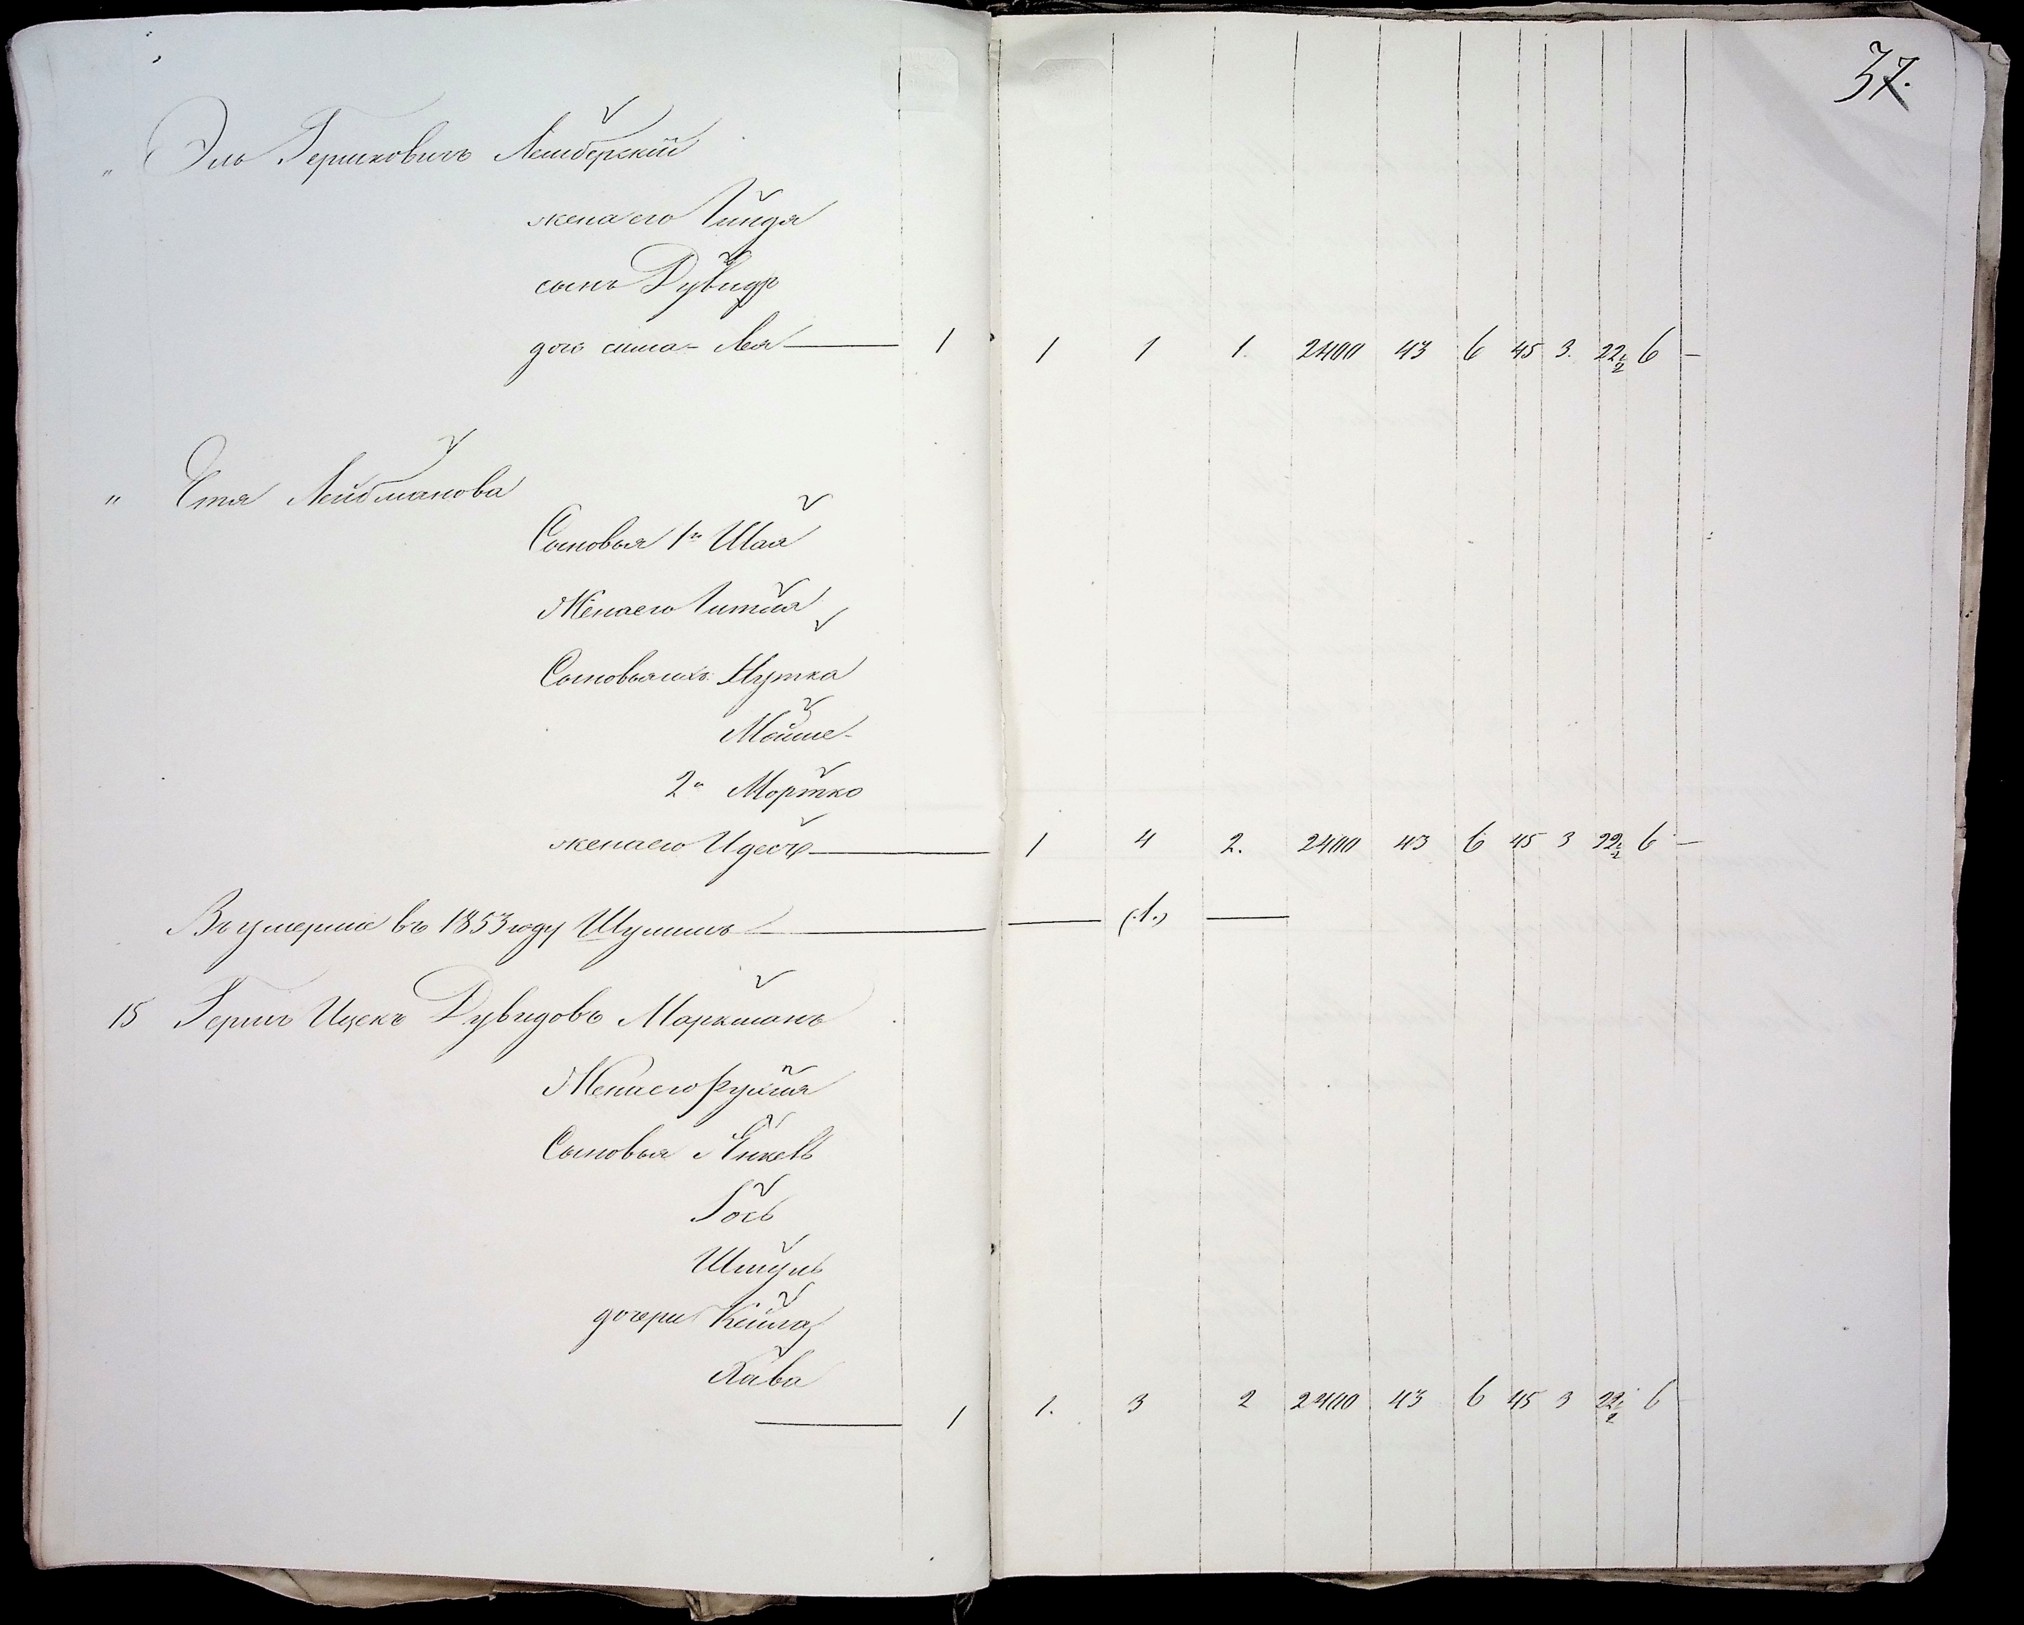 37.
„ Эль Гершковичъ Лемберскій
жена его Гинда
сынъ Дувидъ
дочь сима - Лея 1 1 1 1. 2400 43 6 45 3. 22½ 6 —
„ Етя Лейбманова
Сыновья 1й Шая
Жена его Гитля
Сыновья ихъ Нутка
Мойше
2й Мортко
жена его Идесъ 1 4 2. 2400 43 6 45 3 22½ 6 —
въ 1853 году (.1.)
15 Герш Ицекъ Дувидовъ Маркманъ
Жена его Рухля
Сыновья Янкевъ
Гось
Шмуль
дочери Кейла
Хава
1 1. 3 2 2400 43 6 45 3 22½ 6